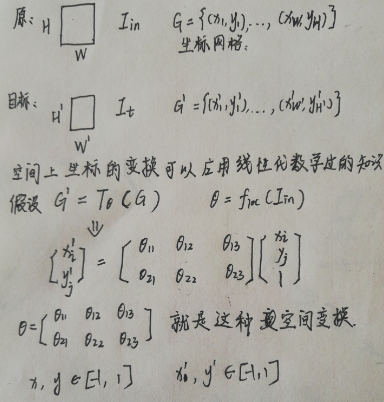 原: H W Iin G = {(x1, y1), ..., (xW, yH)}
坐标网格:
目标: H' W' It G' = {(x1', y1'), ..., (xW', yH')}
空间上坐标的变换可以应用线性代数学过的知识
假设 G' = Tθ(G) θ = floc(Iin)
⇓
[xi' yj'] = [θ11 θ12 θ13 θ21 θ22 θ23] [xi yj 1]
θ = [θ11 θ12 θ13 θ21 θ22 θ23] 就是这种空间变换.
x, y ∈ [-1, 1] x', y' ∈ [-1, 1]